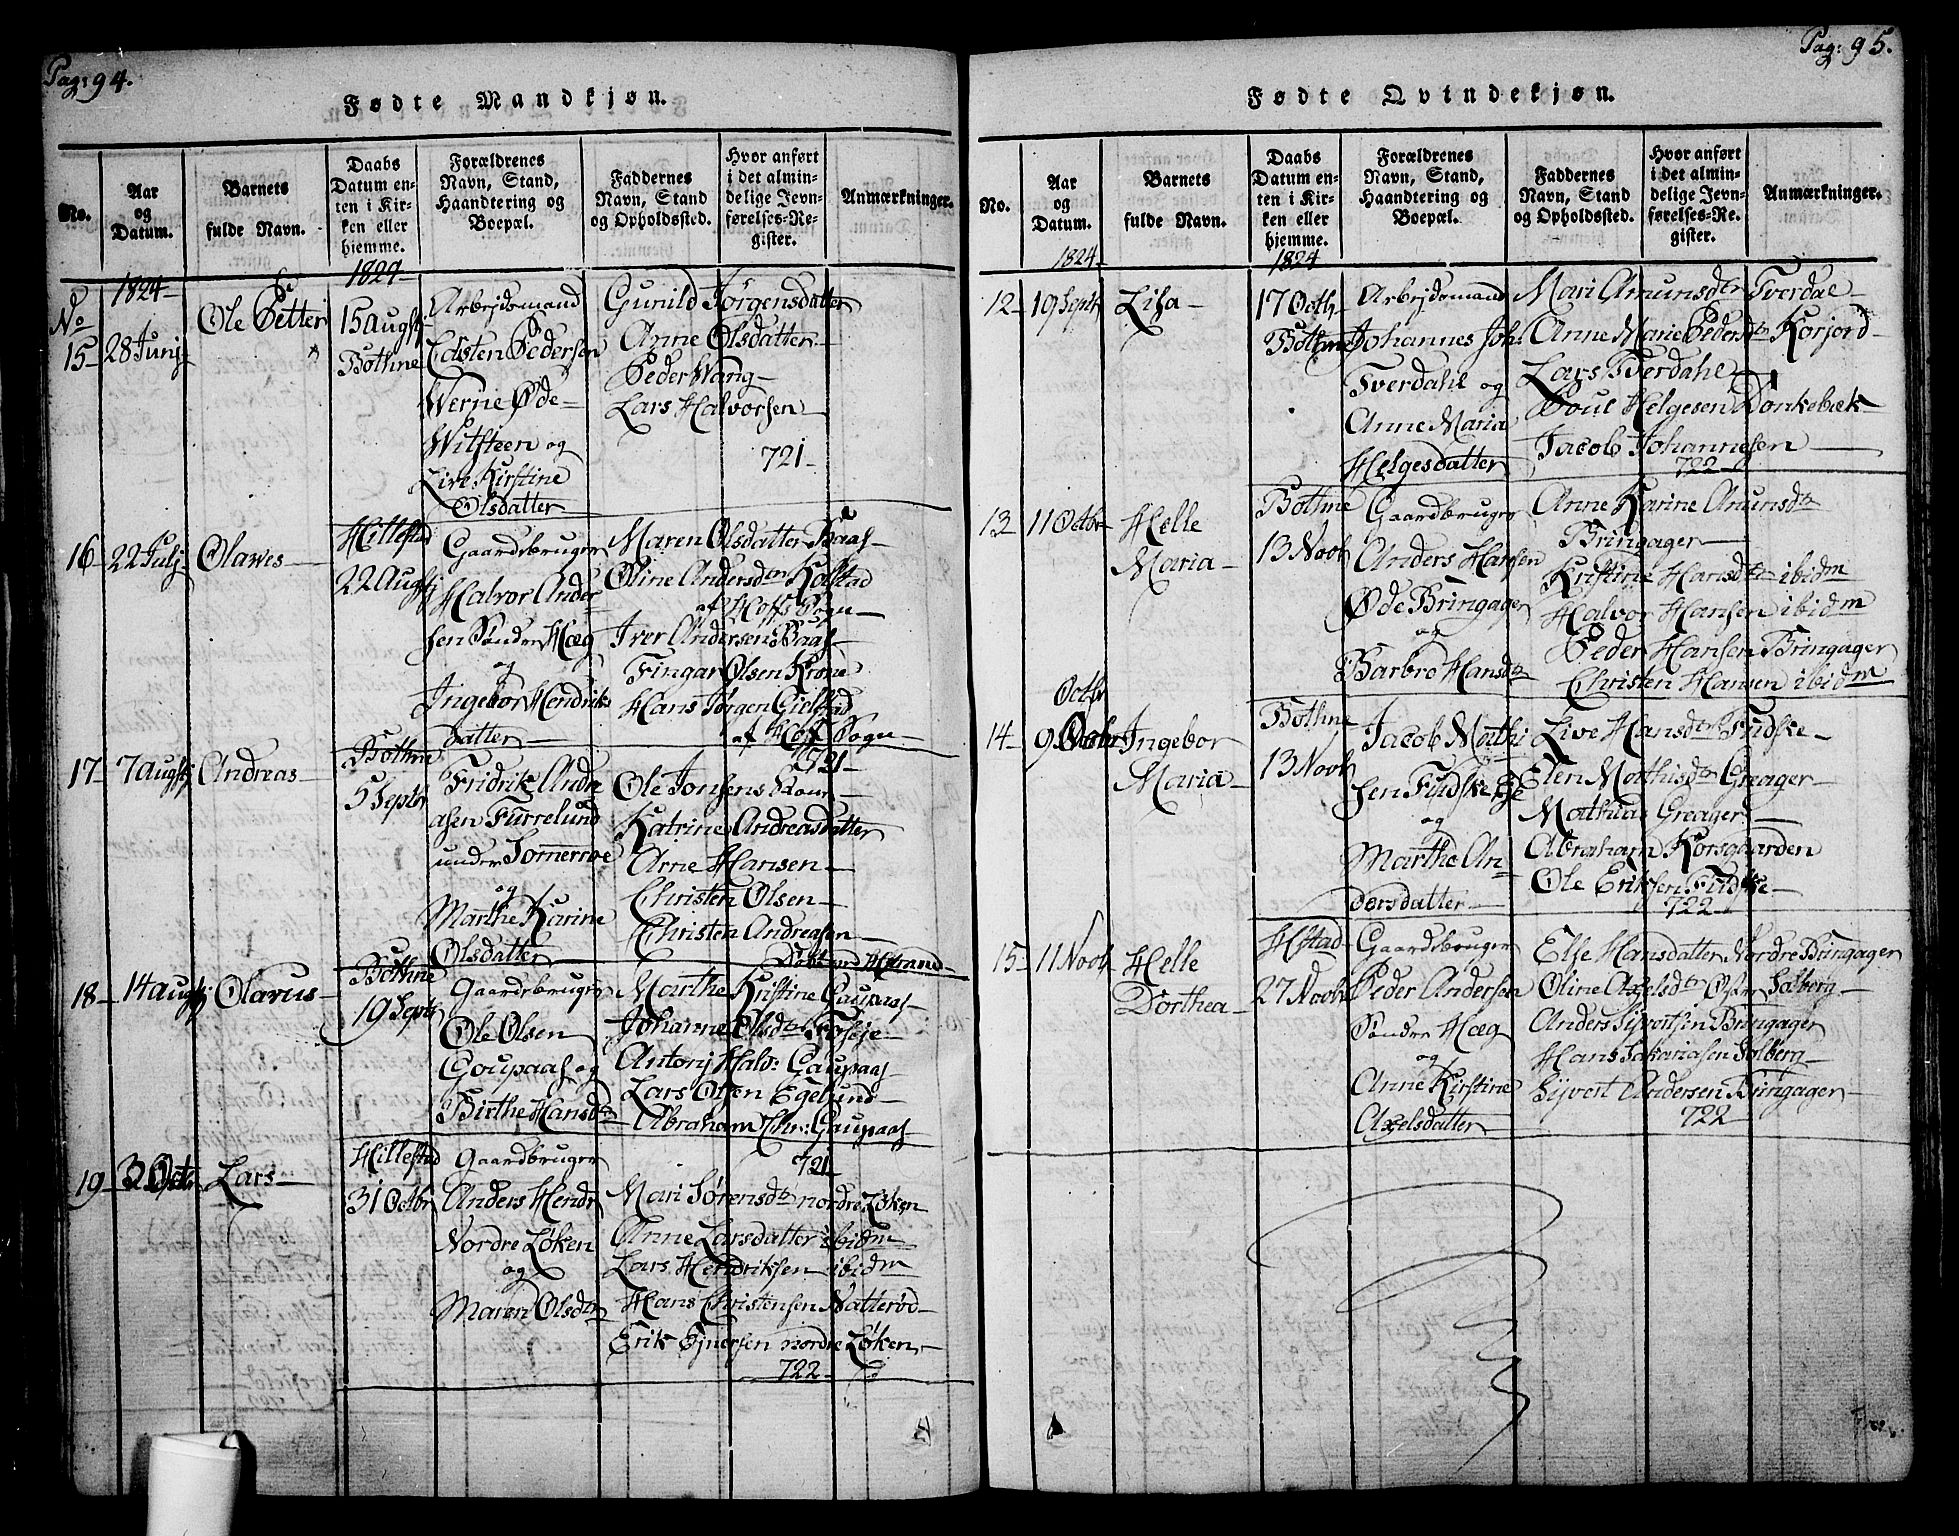 Pag: 94.
Fødte Mandkjøn.
No.
Aar
og
Datum.
Barnets
fulde Navn.
Daabs
Datum en-
ten i Kir-
ken eller
hjemme.
Forældrenes
Navn, Stand,
Haandtering og
Boepæl.
Faddernes
Navn, Stand
og Opholdssted.
Hvor anført
i det almin-
delige Jevn-
førelses-Re-
gister.
Anmærkninger.
1824
No
15
28 Junj
Ole Petter
15 Augst
Bothne
Arbejdsmand
Edsten Pedersen
Werne Øde-
Witsteen og
Live Kirstine
Olsdatter
Gunild Jörgensdatter
Anne Olsdatter
Peder Wang
Lars Halvorsen
721
16
22 Julj
Olawes
Hillestad
22 Augstj
Gaardsbruger
Halvor Ander-
sen Søndre Høeg
og
Ingebor Hendriks
datter
Maren Olsdatter Baas
Oline Andersdtr Kolstad
af Hoffs Sogn
Iver Andersen Baas
Fingar Olsen Krone
Hans Jørgen Gidstad
af Hoff Sogn
721
17
7 Augstj
Andreas
Bothne
5 Septbr
Fridrik Andre
asen Furrelund
under Sommeroe
og
Marthe Karine
Olsdatter
Ole Jonsens Kone
Katrine Andreasdatter
Arne Hansen
Christen Olsen
Christen Andreasen
18
14 Augstj
Olarus
Bothne
19 Septr
Gaardsbruger
Ole Olsen
Goupaas og
Birthe Hansdtr
Marthe Kristine Gaupaas
Johanne Olsdtr
Antonj Halv: Gaupaas
Lars Olsen Egelund
Abraham Chr: Gaupaas
721
19
3 Octbr
Lars
Hillestad
31 Octbr
Gaardbruger
Anders Hendr
Nordre Løken
og
Maren Olsdtr
Mari Sørensdtr nordre Løken
Anne Larsdatter ibidm
Lars Hendriksen ibidm
Hans Christensen Natterød
Erik Ejnersen nordre Løken
722
Pag: 95.
Fødte Qvindekjøn.
No.
Aar
og
Datum.
Barnets
fulde Navn.
Daabs
Datum en-
ten i Kir-
ken eller
hjemme.
Forældrenes
Navn, Stand,
Haandtering og
Boepæl.
Faddernes
Navn, Stand
og Opholdssted.
Hvor anført
i det almin-
delige Jevn-
førelses-Re-
gister.
Anmærkninger.
1824
1824
12
19 Septr
Lisa
17 Octbr
Bothne
Arbejdsmand
Johannes Joh:
Tverdahl og
Anne Maria
Helgesdatter
Mari Amunsdtr Tverdal
Anne Marie Pedersdtr Korjord
Lars Tverdahl
Poul Helgesen Donkebæk
Jacob Johannesen
722
13
11 Octbr
Helle
Maria
Bothne
13 Novbr
Gaardbruger
Anders Hansen
Øde Bringager
og
Barbro Hansdtr
Anne Karine Amunsdtr
Bringager
Kristine Hansdtr ibidm
Halvor Hansen ibidm
Peder Hansen Bringager
Christen Hansen ibidm
14
Octbr
9 Octbr
Ingebor
Maria
Bothne
13 Novbr
Jacob Mathi
sen Fudske Eje
og
Marthe An
dersdatter
Live Hansdtr Fudske
Elen Mathisdtr Greager
Mathias Greager
Abraham Korsgaarden
Ole Eriksen Fudske
722
15
11 Novbr
Helle
Dorthea
Hstad
27 Novbr
Gaardsbruger
Peder Andersen
Søndre Høeg
og
Anne Kirstine
Axelsdatter
Else Hansdatter Nordre Bringager
Oline Axelsdtr Østre Solberg
Anders Syvertsen Bringager
Hans Sakariasen Solberg
Syvert Andersen Bringager
722